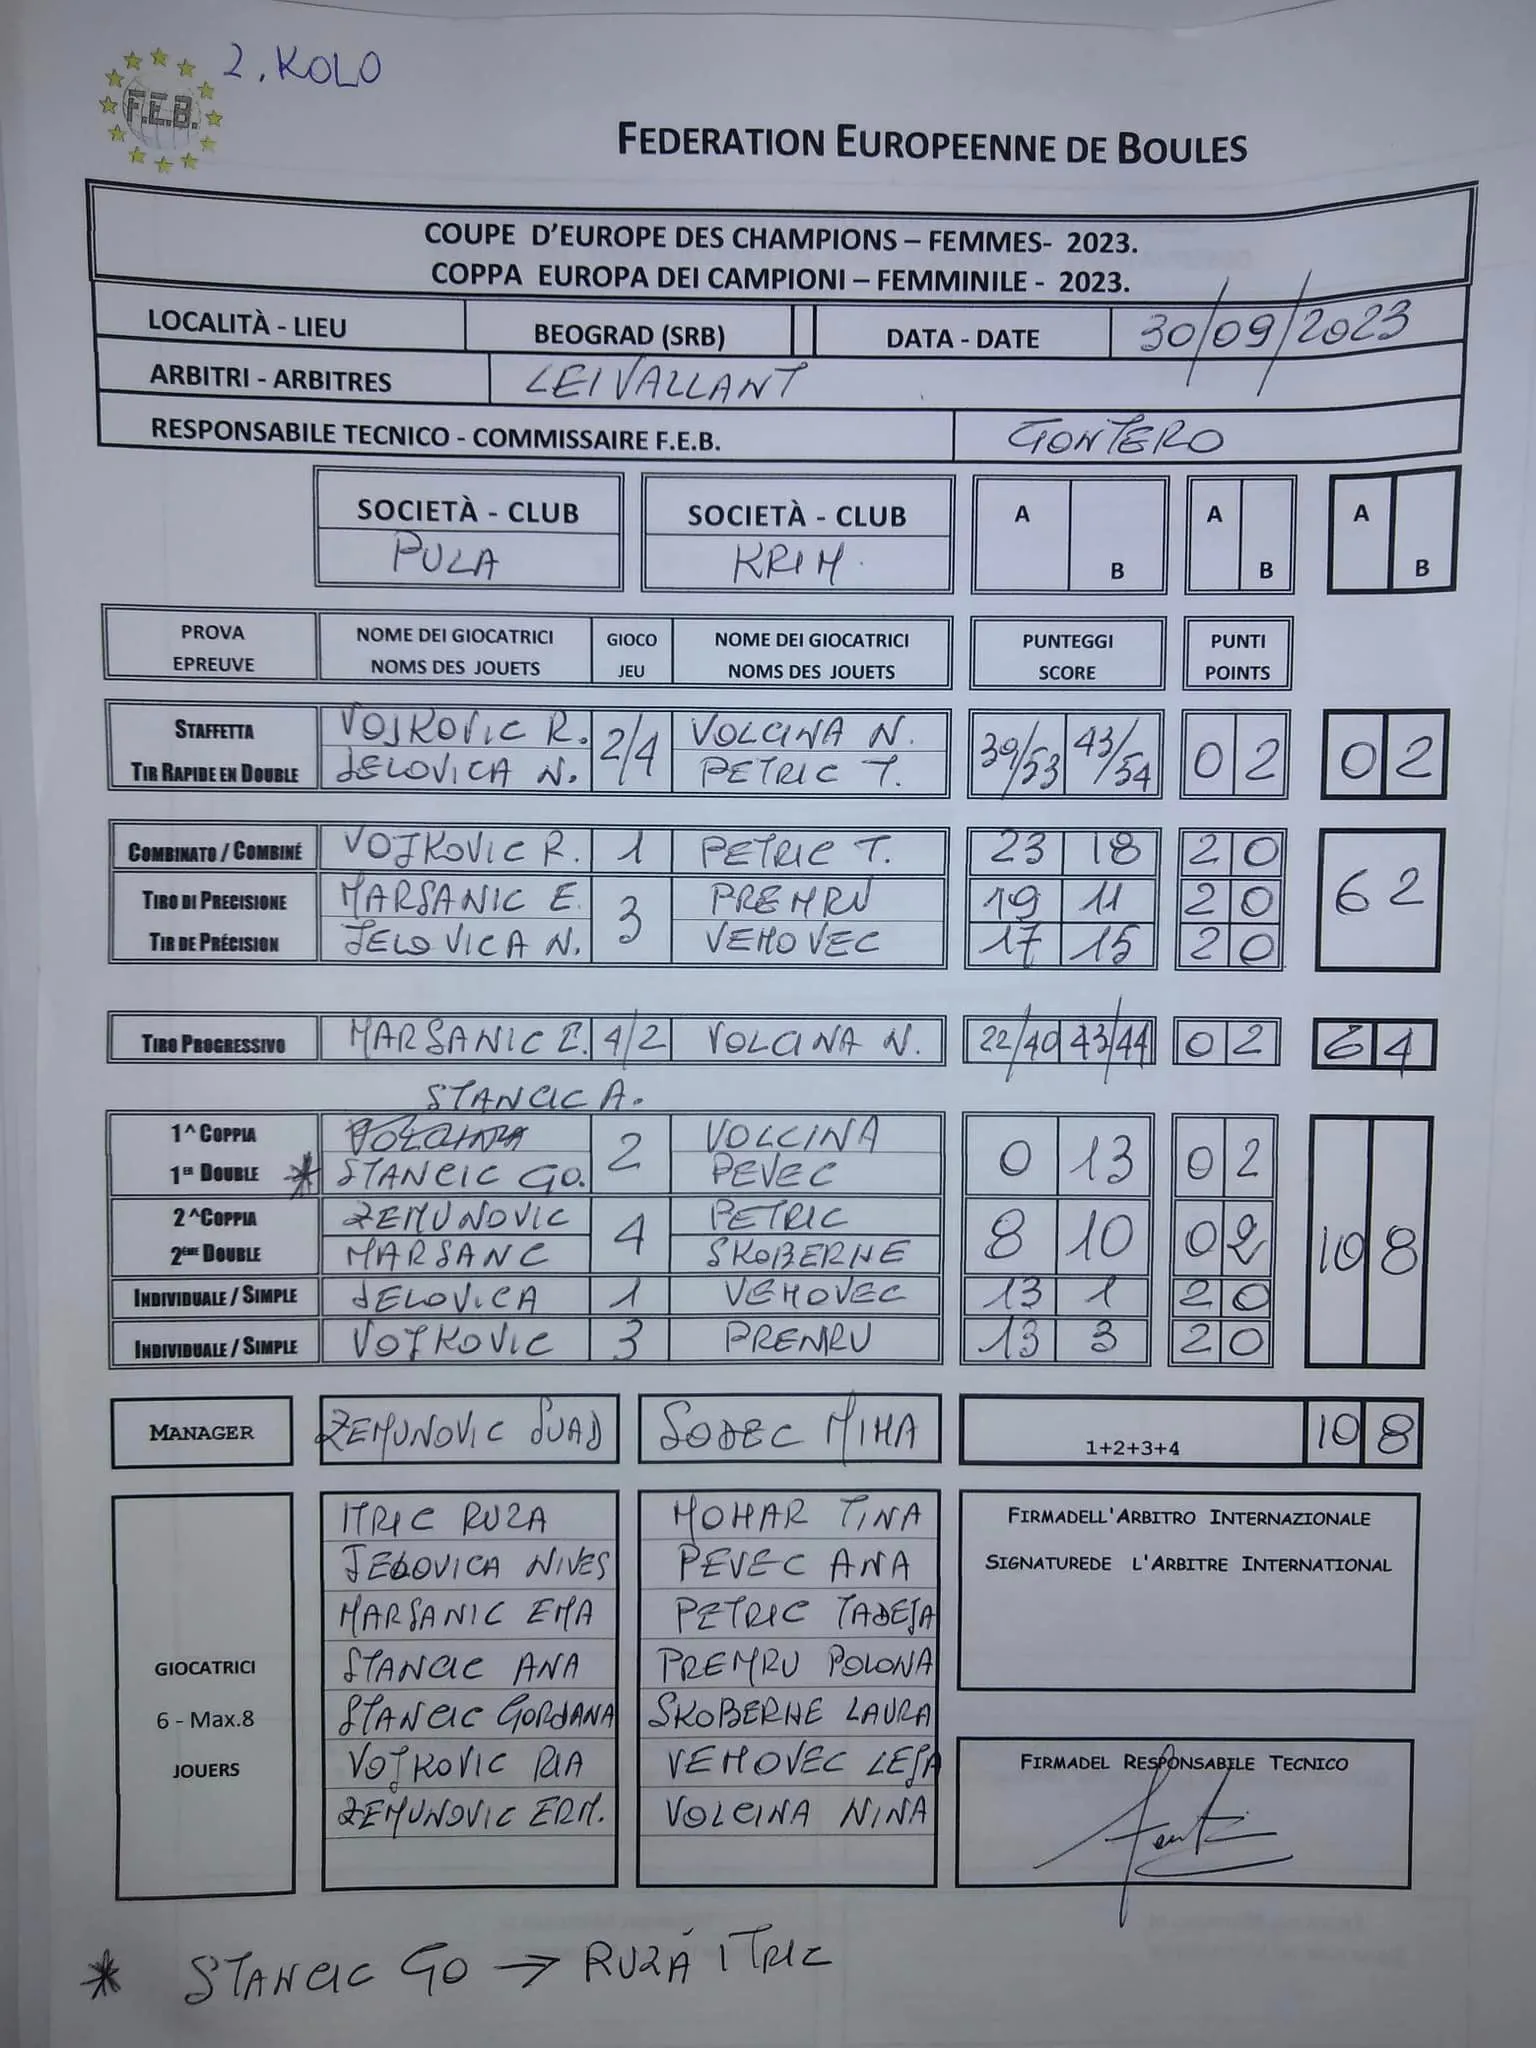 2. KOLO
F.E.B.
FEDERATION EUROPEENNE DE BOULES
COUPE D'EUROPE DES CHAMPIONS – FEMMES- 2023.
COPPA EUROPA DEI CAMPIONI – FEMMINILE - 2023.
LOCALITÀ - LIEU BEOGRAD (SRB) DATA - DATE 30/09/2023
ARBITRI - ARBITRES LEIVALLANT
RESPONSABILE TECNICO - COMMISSAIRE F.E.B. GONTERO
SOCIETÀ - CLUB SOCIETÀ - CLUB A B A B A B
PULA KRIM
PROVA NOME DEI GIOCATRICI GIOCO NOME DEI GIOCATRICI PUNTEGGI PUNTI
EPREUVE NOMS DES JOUETS JEU NOMS DES JOUETS SCORE POINTS
STAFFETTA VOJKOVIC R. 2/4 VOLCINA N. 39/53 43/54 0 2 0 2
TIR RAPIDE EN DOUBLE JELOVICA N. PETRIC T.
COMBINATO / COMBINÉ VOJKOVIC R. 1 PETRIC T. 23 18 2 0 6 2
TIRO DI PRECISIONE MARSANIC E. 3 PREMRU 19 11 2 0
TIR DE PRÉCISION JELOVICA N. VEHOVEC 17 15 2 0
TIRO PROGRESSIVO MARSANIC E. 4/2 VOLCINA N. 22/40 43/44 0 2 6 4
STANCIC A.
1^COPPIA 2 VOLCINA 0 13 0 2 10 8
1ER DOUBLE * STANCIC GO. PEVEC
2^COPPIA ZEMUNOVIC 4 PETRIC 8 10 0 2
2ÈME DOUBLE MARSANC SKOBERNE
INDIVIDUALE / SIMPLE JELOVICA 1 VEHOVEC 13 1 2 0
INDIVIDUALE / SIMPLE VOJKOVIC 3 PREMRU 13 3 2 0
MANAGER ZEMUNOVIC SUAD SODEC MIHA 1+2+3+4 10 8
ITRIC RUZA MOHAR TINA FIRMADELL'ARBITRO INTERNAZIONALE
JELOVICA NIVES PEVEC ANA SIGNATUREDE L'ARBITRE INTERNATIONAL
MARSANIC EMA PETRIC TADEJA
GIOCATRICI STANCIC ANA PREMRU POLONA
6 - Max.8 STANCIC GORDANA SKOBERNE LAURA
JOUERS VOJKOVIC RIA VEHOVEC LEJA FIRMADEL RESPONSABILE TECNICO
ZEMUNOVIC ERM. VOLCINA NINA
* STANCIC GO → RUZA ITRIC